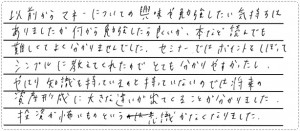 以前からマネーについての興味や勉強したい気持ちは
ありましたが何から勉強したら良いか、本など読んでも
難しくてよく分かりませんでした。セミナーではポイントをしぼって
シンプルに教えてくれたのでとても分かりやすかったし、
やはり知識を持っているのと持っていないのでは将来の
資産形成に大きな違いが出てくることが分かりました。
投資が怖いものという意識がなくなりました。